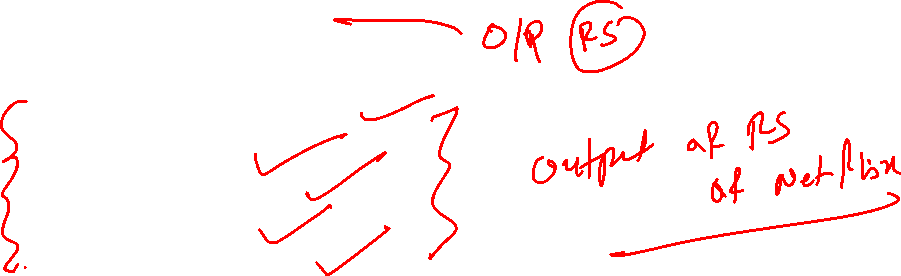 O/P RS
Output of RS
of Netflix